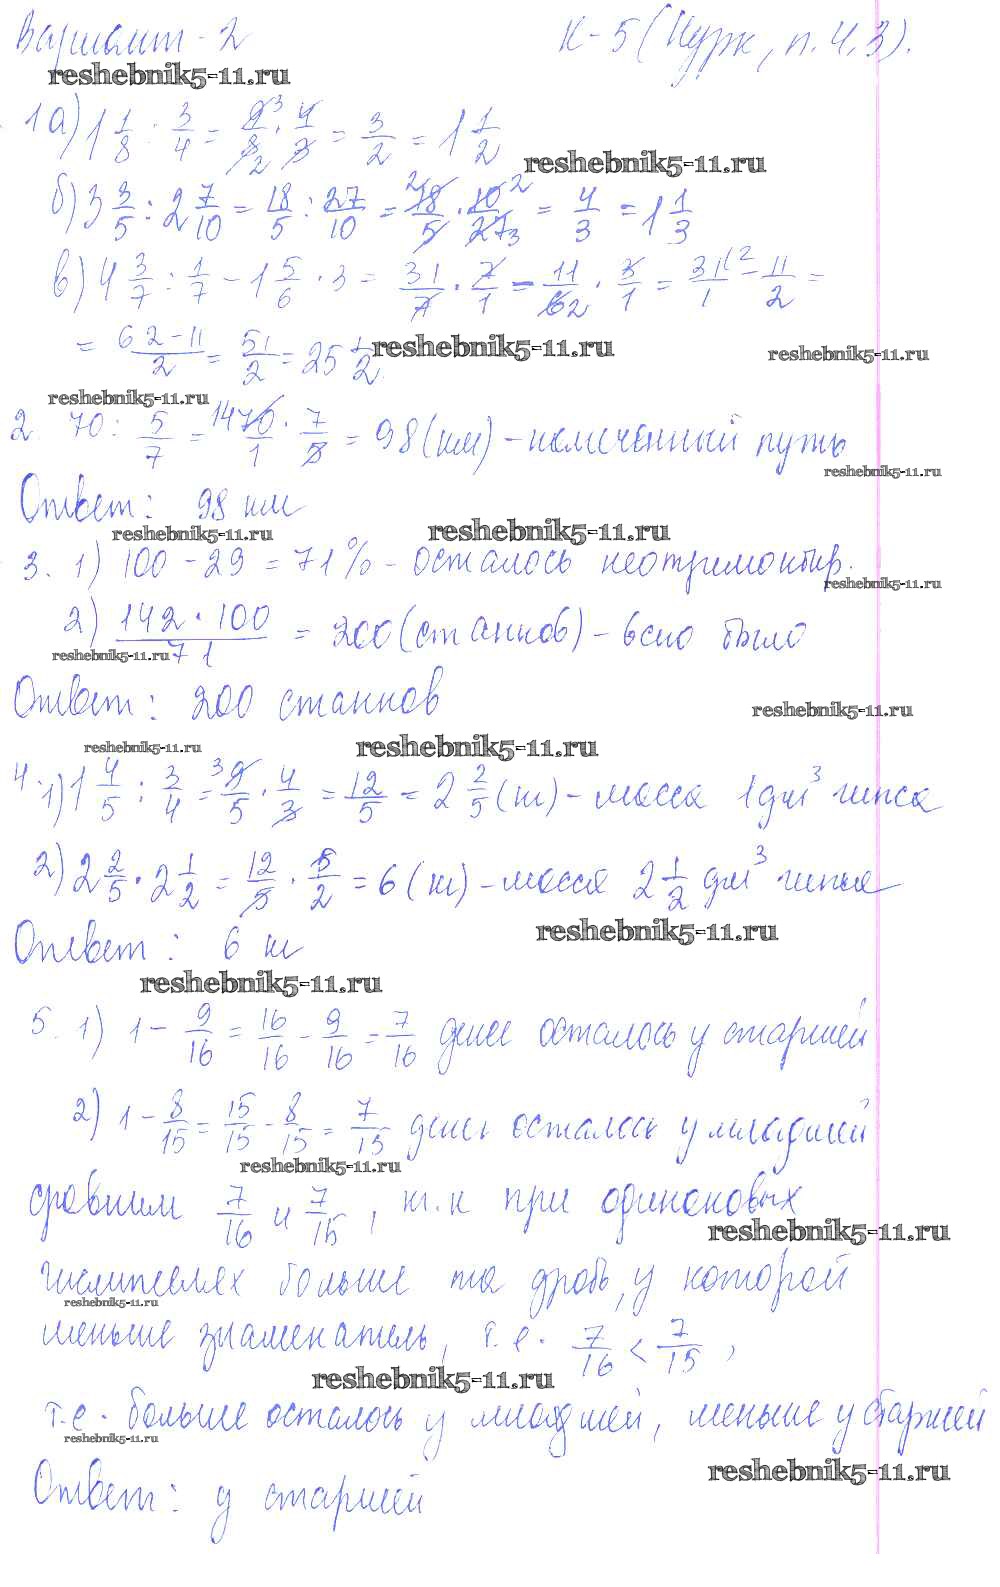 Вариант-2 К-5 (Нурк, п.4.3).
reshebnik5-11.ru
1а) 1 1/8 : 3/4 = 9/8 · 4/3 = 3/2 = 1 1/2
reshebnik5-11.ru
б) 3 3/5 : 2 7/10 = 18/5 : 27/10 = 18/5 · 10/27 = 4/3 = 1 1/3
в) 4 3/7 : 1/7 - 1 5/6 · 3 = 31/7 · 7/1 - 11/6 · 3/1 = 31/1 - 11/2 =
= 62-11/2 = 51/2 = 25 1/2.
reshebnik5-11.ru
reshebnik5-11.ru
reshebnik5-11.ru
2. 70 : 5/7 = 70/1 · 7/5 = 98 (км) - намеченный путь
reshebnik5-11.ru
Ответ: 98 км
reshebnik5-11.ru
reshebnik5-11.ru
3. 1) 100 - 29 = 71% - осталось неотремонтир.
reshebnik5-11.ru
2) 142 · 100/71 = 200 (станков) - всего было
reshebnik5-11.ru
Ответ: 200 станков
reshebnik5-11.ru
reshebnik5-11.ru
reshebnik5-11.ru
4. 1) 1 4/5 : 3/4 = 9/5 · 4/3 = 12/5 = 2 2/5 (кг) - масса 1 дм³ гипса
2) 2 2/5 · 2 1/2 = 12/5 · 5/2 = 6 (кг) - масса 2 1/2 дм³ гипса
reshebnik5-11.ru
Ответ: 6 кг
reshebnik5-11.ru
5. 1) 1 - 9/16 = 16/16 - 9/16 = 7/16 денег осталось у старшей
2) 1 - 8/15 = 15/15 - 8/15 = 7/15 денег осталось у младшей
reshebnik5-11.ru
сравним 7/16 и 7/15, т.к при одинаковых
reshebnik5-11.ru
числителях больше та дробь, у которой
reshebnik5-11.ru
меньше знаменатель, т.е. 7/16 < 7/15,
reshebnik5-11.ru
т.е. больше осталось у младшей, меньше у старшей
reshebnik5-11.ru
reshebnik5-11.ru
Ответ: у старшей